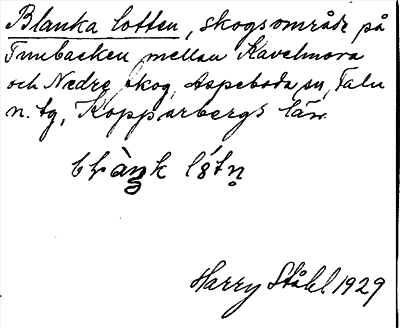 Blanka lotten, skogsområde på
Tunbacken mellan Kavelmora
och Nedre skog, Aspeboda sn, Falu
n. tg, Kopparbergs län.
lótn̥
Harry Ståhl 1929